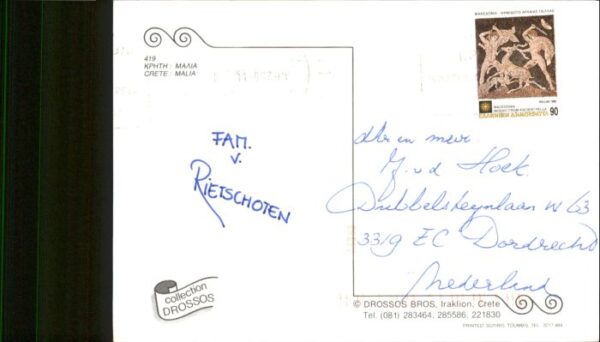 419
ΚΡΗΤΗ: ΜΑΛΙΑ
CRETE: MALIA
ΕΛΛΗΝΙΚΗ ΔΗΜΟΚΡΑΤΙΑ 90
FAM.
v.
RIETSCHOTEN
dhr en mevr.
v d Hoek.
Dubbelsteynlaan W 63
3319 EC Dordrecht
Nederland
collection
DROSSOS
© DROSSOS BROS, Iraklion, Crete
Tel. (081) 283464, 285586, 221830